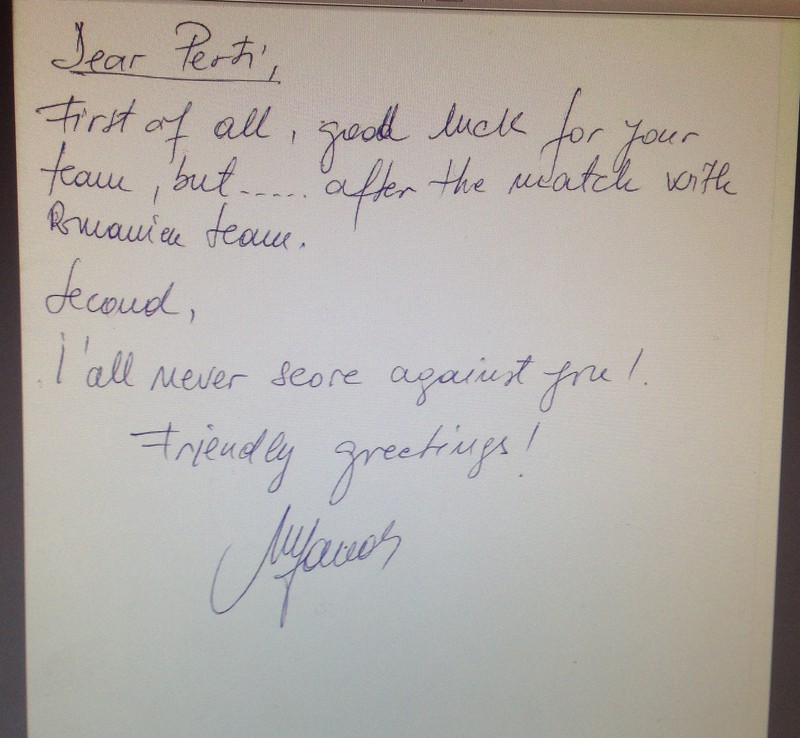 Dear Pertti,
First of all, good luck for your
team, but...... after the match with
Romanian team.
Second,
I'all never score against you!
Friendly greetings!